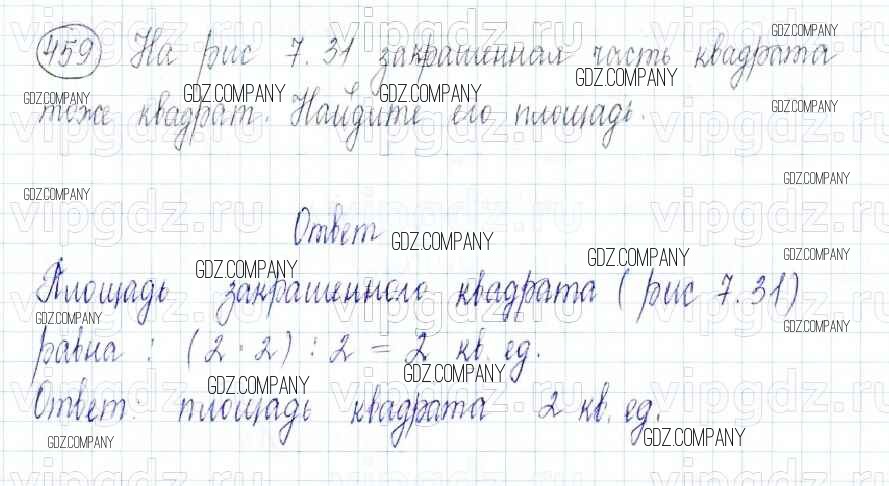 459 На рис 7.31 закрашенная часть квадрата
тоже квадрат. Найдите его площадь.
Ответ
Площадь закрашенного квадрата (рис 7.31)
равна : (2 · 2) : 2 = 2 кв. ед.
Ответ: площадь квадрата 2 кв. ед.